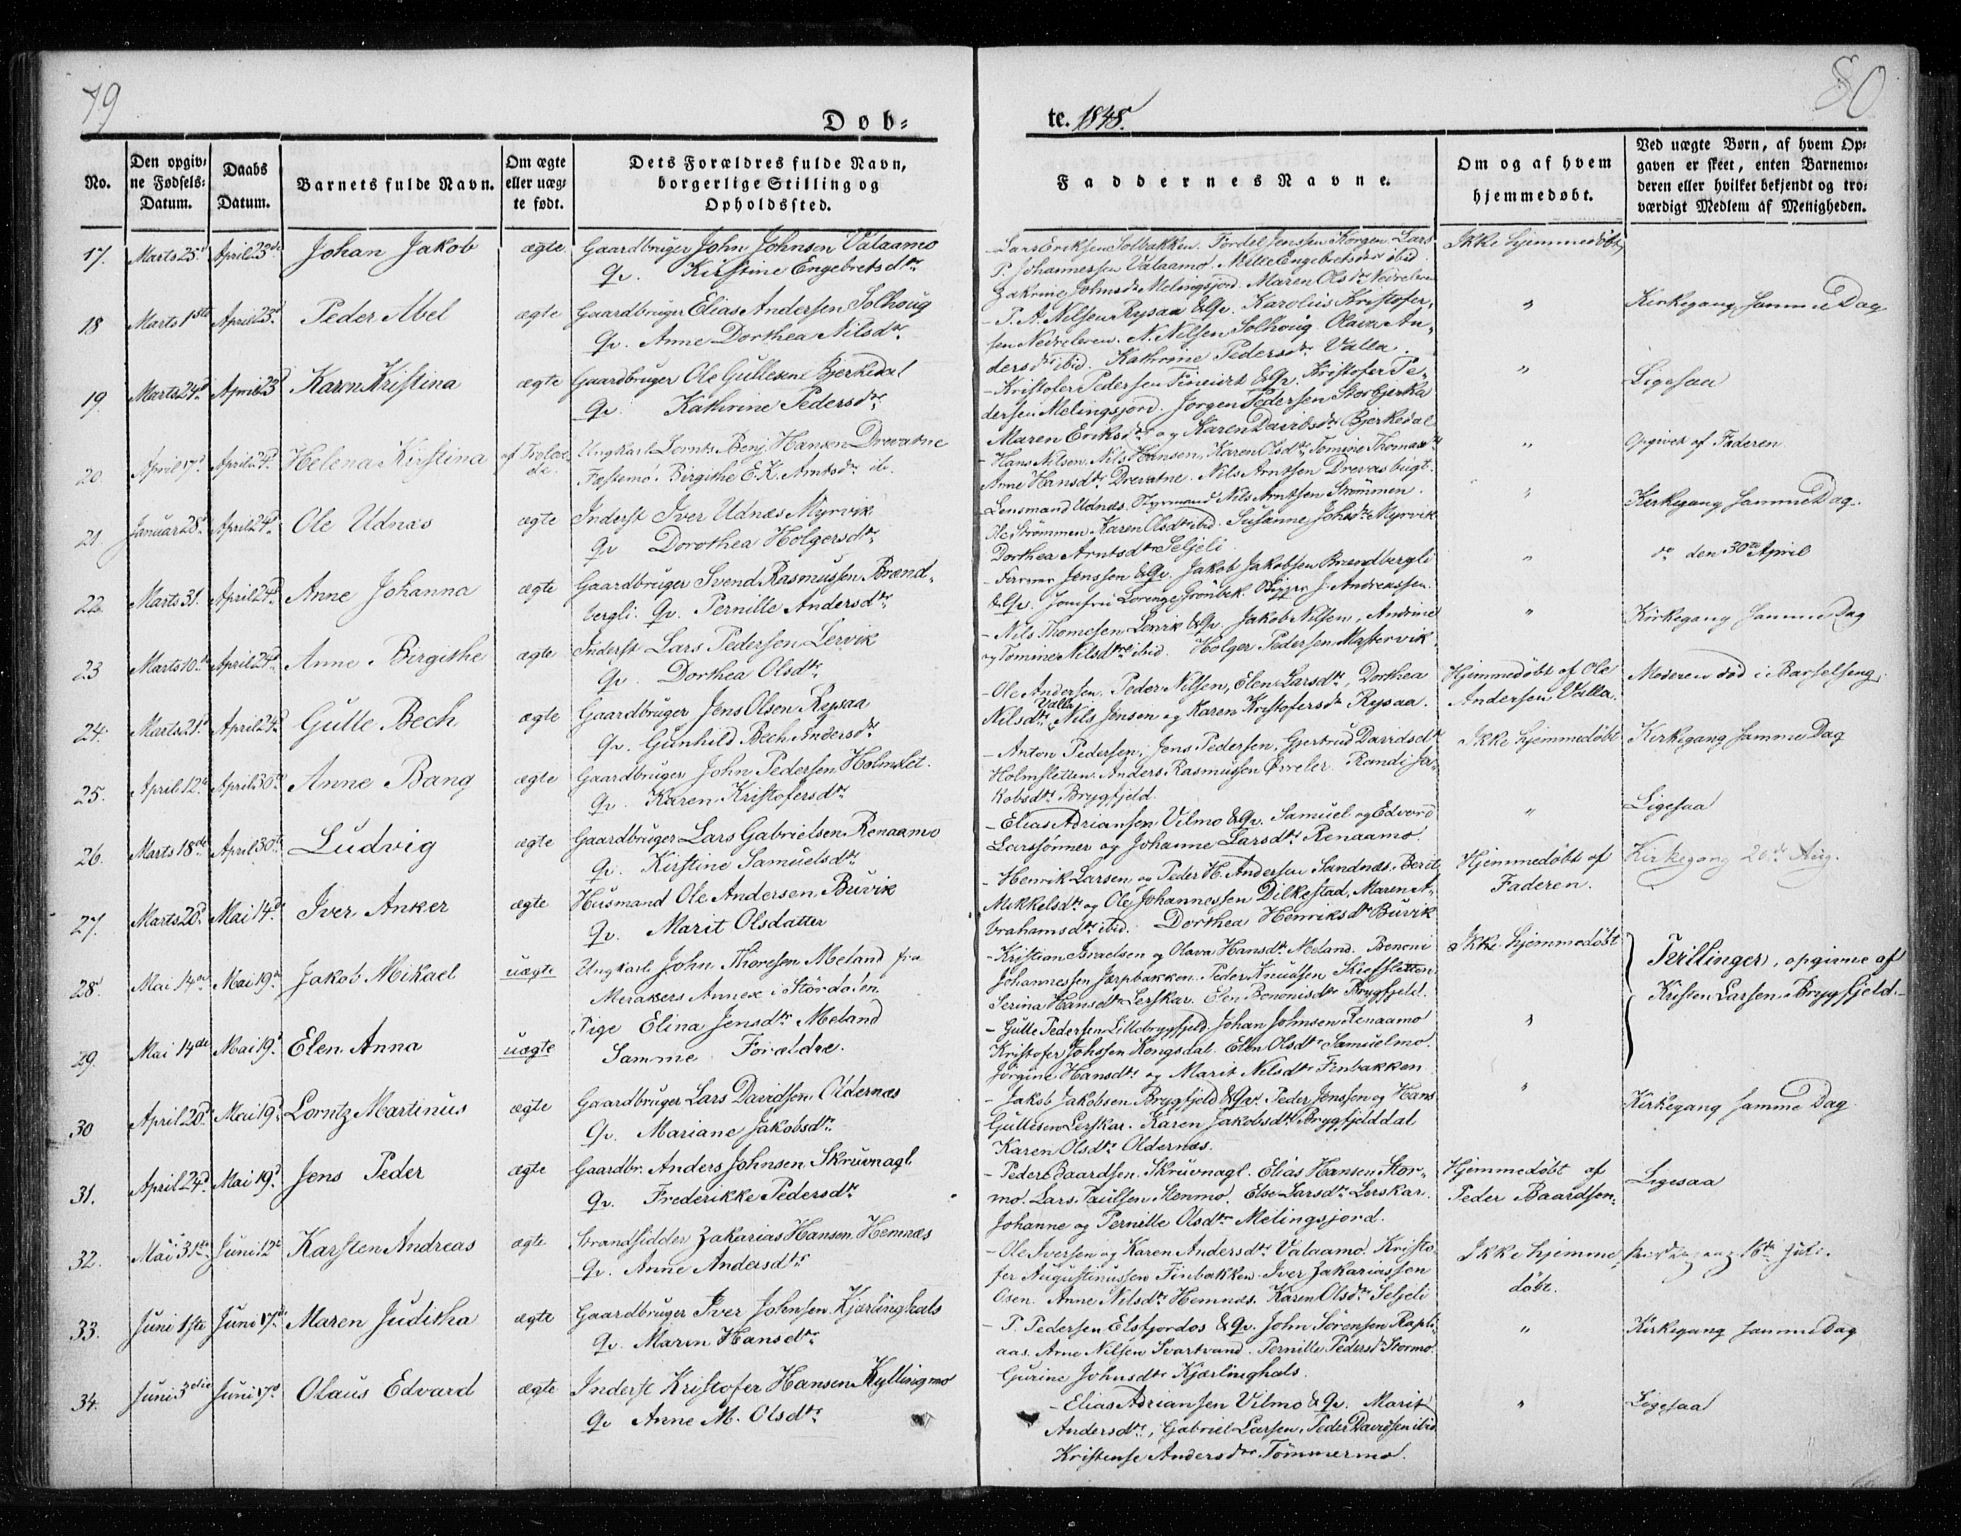 79
80
Dob-
te. 1848.
No.
Den opgiv-
ne Fødsels-
Datum.
Daabs
Datum.
Barnets fulde Navn.
Om ægte
eller uæg-
te født.
Dets Forældres fulde Navn,
borgerlige Stilling og
Opholdssted.
Faddernes Navne.
Om og af hvem
hjemmedøbt.
Ved uægte Børn, af hvem Op-
gaven er skeet, enten Barnemo-
deren eller hvilket bekjendt og tro-
værdigt Medlem af Menigheden.
17. Marts 25d April 23de Johan Jakob ægte Gaardbruger John Johnsen Valaamo
Qv. Kirstine Engebretsdtr
Lars Eriksen Solbakken. Fordel Jensen Korgen. Lars
P. Johannessen Valaamo. Mille Engebretsdtr ibid
Zakrine Johnsdtr Melingsjord. Maren Olsdtr Nedreleren
Ikke hjemmedøbt
18 Marts 1ste April 23d Peder Abel ægte Gaardbruger Elias Andersen Solhoug
Qv. Anne Dorthea Nilsdtr
- P. A. Nilsen Rysaa & Qv. Karolius Kristofer-
sen Nedreleren. N. Nilsen Solhoug Olava An-
dersdtr ibid. Kathrine Pedersdtr Valla.
" Kirkegang samme Dag
19. Marts 24d April 23d Karen Kristina ægte Gaardbruger Ole Gullesen Bjerkedal
Qv. Kathrine Pedersdtr
- Kristofer Pedersen & Qv. Kristofer Pe-
dersen Melingsjord. Jørgen Pedersen Storbjerka
Maren Eriksdtr og Karen Davidsdtr Bjerkedal
" Ligesaa
20. April 17d April 24d Helena Kirstina af Trolove-
de. Ungkarl Lornts Benj. Hansen Drevatne
Fæstemø: Birgithe E. K. Arntsdtr ib.
- Hans Nilsen, Nils Hansen, Karen Olsdtr, Tomine Thomasdtr
Anne Hansdtr Drevatne. Nils Arntsen Drevasbugt.
" Opgivet af Faderen
21 Januar 28d April 24d Ole Udnæs ægte Inderst Iver Udnæs Myrvik
Qv Dorothea Holgersdtr
Lensmand Udnæs. Styrmand Nils Arntsen Strømmen.
Ole Strømmen. Karen Olsdtr ibid. Susanne Johsdtr Myrvik
Dorthea Arntsdtr Seljeli
" Kirkegang samme Dag.
22. Marts 31. April 24d Anne Johanna ægte Gaardbruger Svend Rasmussen Brænd-
bergli. Qv. Pernille Andersdtr
- Jenssen & Qv. Jakob Jakobsen Brændbergli
& Qv. Jomfru Lorenze Grønbek. J. Andreassen.
" do den 30te April
23 Marts 10de April 24d Anne Birgithe ægte Inderst Lars Pedersen Lervik
Qv. Dorthea Olsdtr
- Nils Thomesen Lenvik & Qv. Jakob Nilsen, Andrine
og Tomine Nilsdtr ibid. Holger Pedersen Mastervik
" Kirkegang samme Dag
24. Marts 21d April 24d Gulle Bech ægte Gaardbruger Jens Olsen Rysaa
Qv. Gunhild Bech Andersdtr
- Ole Andersen. Peder Nilsen, Elen Larsdtr, Dorthea
Nilsdtr Valla. Nils Jensen og Karen Kristofersdtr Rysaa.
Hjemmedøbt af Ole
Andersen Valla.
Moderen død i Barselseng.
25. April 12te April 30te Anne Bang ægte Gaardbruger John Pedersen Holmslet.
Qv. Karen Kristofersdtr
- Anton Pedersen, Jens Pedersen. Gjertrud Davidsdtr
Holmsletten. Anders Rasmussen Øvreler. Randi Ja-
kobsdtr Brygfjeld.
Ikke hjemmedøbt Kirkegang samme Dag
26. Marts 18de April 30te Ludvig ægte Gaardbruger Lars Gabrielsen Renaamo
Qv. Kirstine Samuelsdtr
- Elias Adriansen Vilmo & Qv. Samuel og Edvard
Larssønner og Johanne Larsdtr Renaamo
" Ligesaa
27. Marts 20d Mai 14d Iver Anker ægte Husmand Ole Andersen Buvik
Qv. Marit Olsdatter
- Henrik Larsen og Peder H. Andersen Sandnæs. Berit
Mikkelsdtr og Ole Johannessen Dilkestad, Maren A-
brahamsdtr ibid. Dorthea Henriksdtr Buvik
Hjemmedøbt af
Faderen.
Kirkegang 20de Aug.
28. Mai 14de Mai 19d Jakob Mikael uægte Ungkarl John Thoresen Meland fra
Merakers Annex i Størdalen
Pige Elina Jensdtr Meland
- Kristian Israelsen og Olava Hansdtr Meland. Benoni
Johannessen Jarpbakken. Peder Knudsen Skiefsletten
Serina Hansdtr Lerskar. Elen Bononisdtr Brygfjeld.
Ikke hjemmedøbt
Tvillinger, opgivne af
Kristen Larsen Brygfjeld.
29. Mai 14de Mai 19d Elen Anna uægte Samme Forældre.
- Gulle Pedersen Lillebrygfjeld. Johan Johnsen Renaamo
Kristofer Johssen Kongsdal. Elen Olsdtr Samuelmo.
Jørgine Hansdtr og Marit Nilsdtr Finbakken
"
30 April 20d Mai 19d Lorntz Martinus ægte Gaardbruger Lars Davidsen Oldernæs
Qv. Mariane Jakobsdtr
- Jakob Jakobsen Brygfjeld & Qv. Peder Jenssen og Hans
Gullesen Lerskar. Karen Jakobsdtr Brygfjelddal
Karen Olsdtr Oldernæs.
" Kirkegang samme Dag
31. April 24d Mai 19d Jens Peder ægte Gaardbr. Anders Johnsen Skruvnagl
Qv. Frederikke Pedersdtr
- Peder Baardsen. Skruvnagl. Elias Hansen Stor-
mo. Lars Paulsen Stenmo. Else Larsdtr Lerskar.
Johanne og Pernille Olsdtr Melingsjord.
Hjemmedøbt af
Peder Baardsen.
Ligesaa
32. Mai 31te Juni 12te Karsten Andreas ægte Strandsidder Zakarias Hansen Hemnæs
Qv. Anne Andersdtr
- Ole Iversen og Karen Andersdtr Valaamo. Kristo-
fer Augustinussen Finbakken. Iver Zakariassen
Osen. Anne Nilsdtr Hemnæs. Karen Olsdtr Seljeli
Ikke hjemme-
døbt.
Kirkegang 16de Juli.
33. Juni 1ste Juni 17d Maren Juditha ægte Gaardbruger Iver Johnsen Kjærlinghals
Qv. Maren Hansdtr
- P. Pedersen Elsfjordos & Qv. John Sørensen Rapli-
aas. Arne Nilsen Svartvand. Pernille Pedersdtr Stormo.
Gurine Johnsdtr Kjærlinghals.
" Kirkegang samme Dag
34. Juni 3die Juni 17d Olaus Edvard ægte Inderst Kristofer Hansen Kyllingmo
Qv. Anne M. Olsdtr
- Elias Adriansen Vilmo & Qv. Marit
Andersdtr, Gabriel Larsen, Peder Davidsen ibid
Kristense Andersdtr Tømmermo.
" Ligesaa